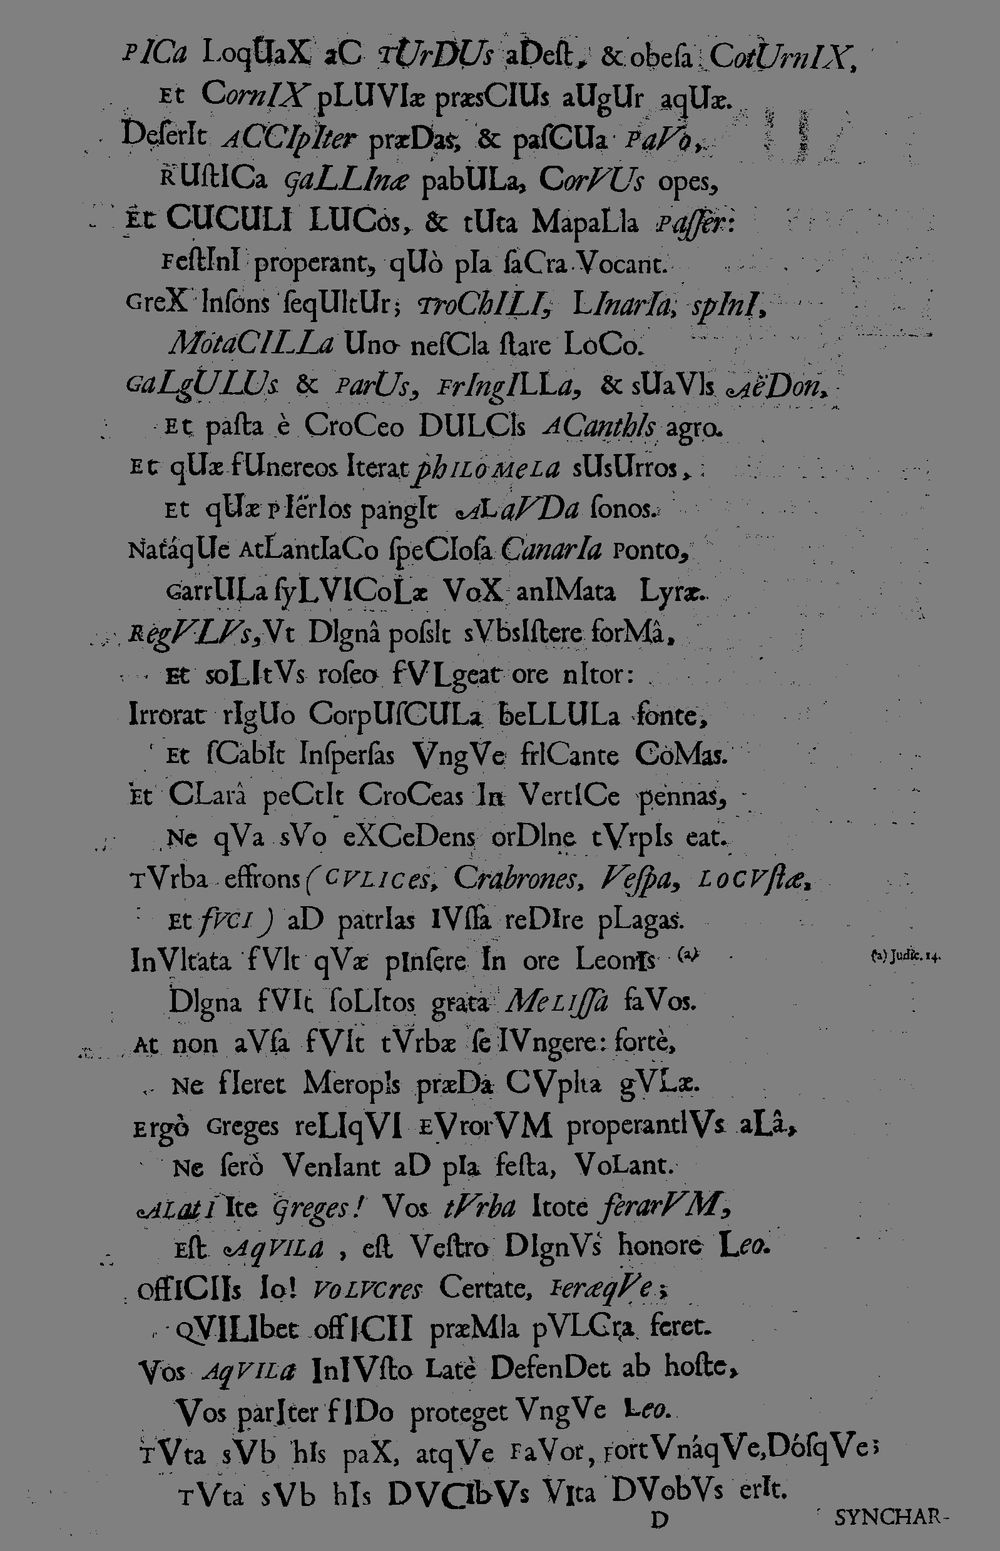 PICa LoqUaX aC TUrDUs aDeſt, & obeſa CotUrnIX,
Et CornIX pLUVIæ præsCIUs aUgUr aqUæ.
DeſerIt ACCIpIter præDas, & paſCUa PaVo,
RUſtICa GaLLInæ pabULa, CorVUs opes,
Et CUCULI LUCos, & tUta MapaLIa Paſſer:
FeſtInI properant, qUò pIa ſaCra Vocant.
GreX Inſons ſeqUItUr; TroChILI, LInarIa, spInI,
MotaCILLa Uno neſCIa ſtare LoCo.
GaLgULUs & ParUs, FrIngILLa, & sUaVIs AëDon,
Et paſta è CroCeo DULCIs ACanthIs agro.
Et qUæ fUnereos Iterat phILoMeLa sUsUrros,
Et qUæ PIërIos pangIt ALaVDa ſonos.
NatáqUe AtLantIaCo ſpeCIoſa CanarIa Ponto,
GarrULa ſyLVICoLæ VoX anIMata Lyræ.
RegVLVs, Vt DIgnâ poſsIt sVbsIſtere forMâ,
Et soLItVs roſeo fVLgeat ore nItor:
Irrorat rIgUo CorpUſCULa beLLULa fonte,
Et ſCabIt Inſperſas VngVe frICante CoMas.
Et CLarâ peCtIt CroCeas In VertICe pennas,
Ne qVa sVo eXCeDens orDIne tVrpIs eat.
TVrba effrons (CVLICes, Crabrones, Veſpa, LoCVſtæ,
Et fVCI) aD patrIas IVſſa reDIre pLagas.
InVItata fVIt qVæ pInſere In ore LeonIs (a)
(a) Judic. 14.
DIgna fVIt ſoLItos grata MeLIſſa faVos.
At non aVſa fVIt tVrbæ ſe IVngere: fortè,
Ne fIeret MeropIs præDa CVpIta gVLæ.
Ergò Greges reLIqVI EVrorVM properantIVs aLâ,
Ne ſerò VenIant aD pIa feſta, VoLant.
ALatI Ite Greges! Vos tVrba Itote ferarVM,
Eſt AqVILa, eſt Veſtro DIgnVs honore Leo.
OffICIIs Io! VoLVCres Certate, FeræqVe;
QVILIbet offICII præMIa pVLCra feret.
Vos AqVILa InIVſto Latè DefenDet ab hoſte,
Vos parIter fIDo proteget VngVe Leo.
TVta sVb hIs paX, atqVe FaVor, FortVnáqVe, DóſqVe;
TVta sVb hIs DVCIbVs VIta DVobVs erIt.
D
SYNCHAR-